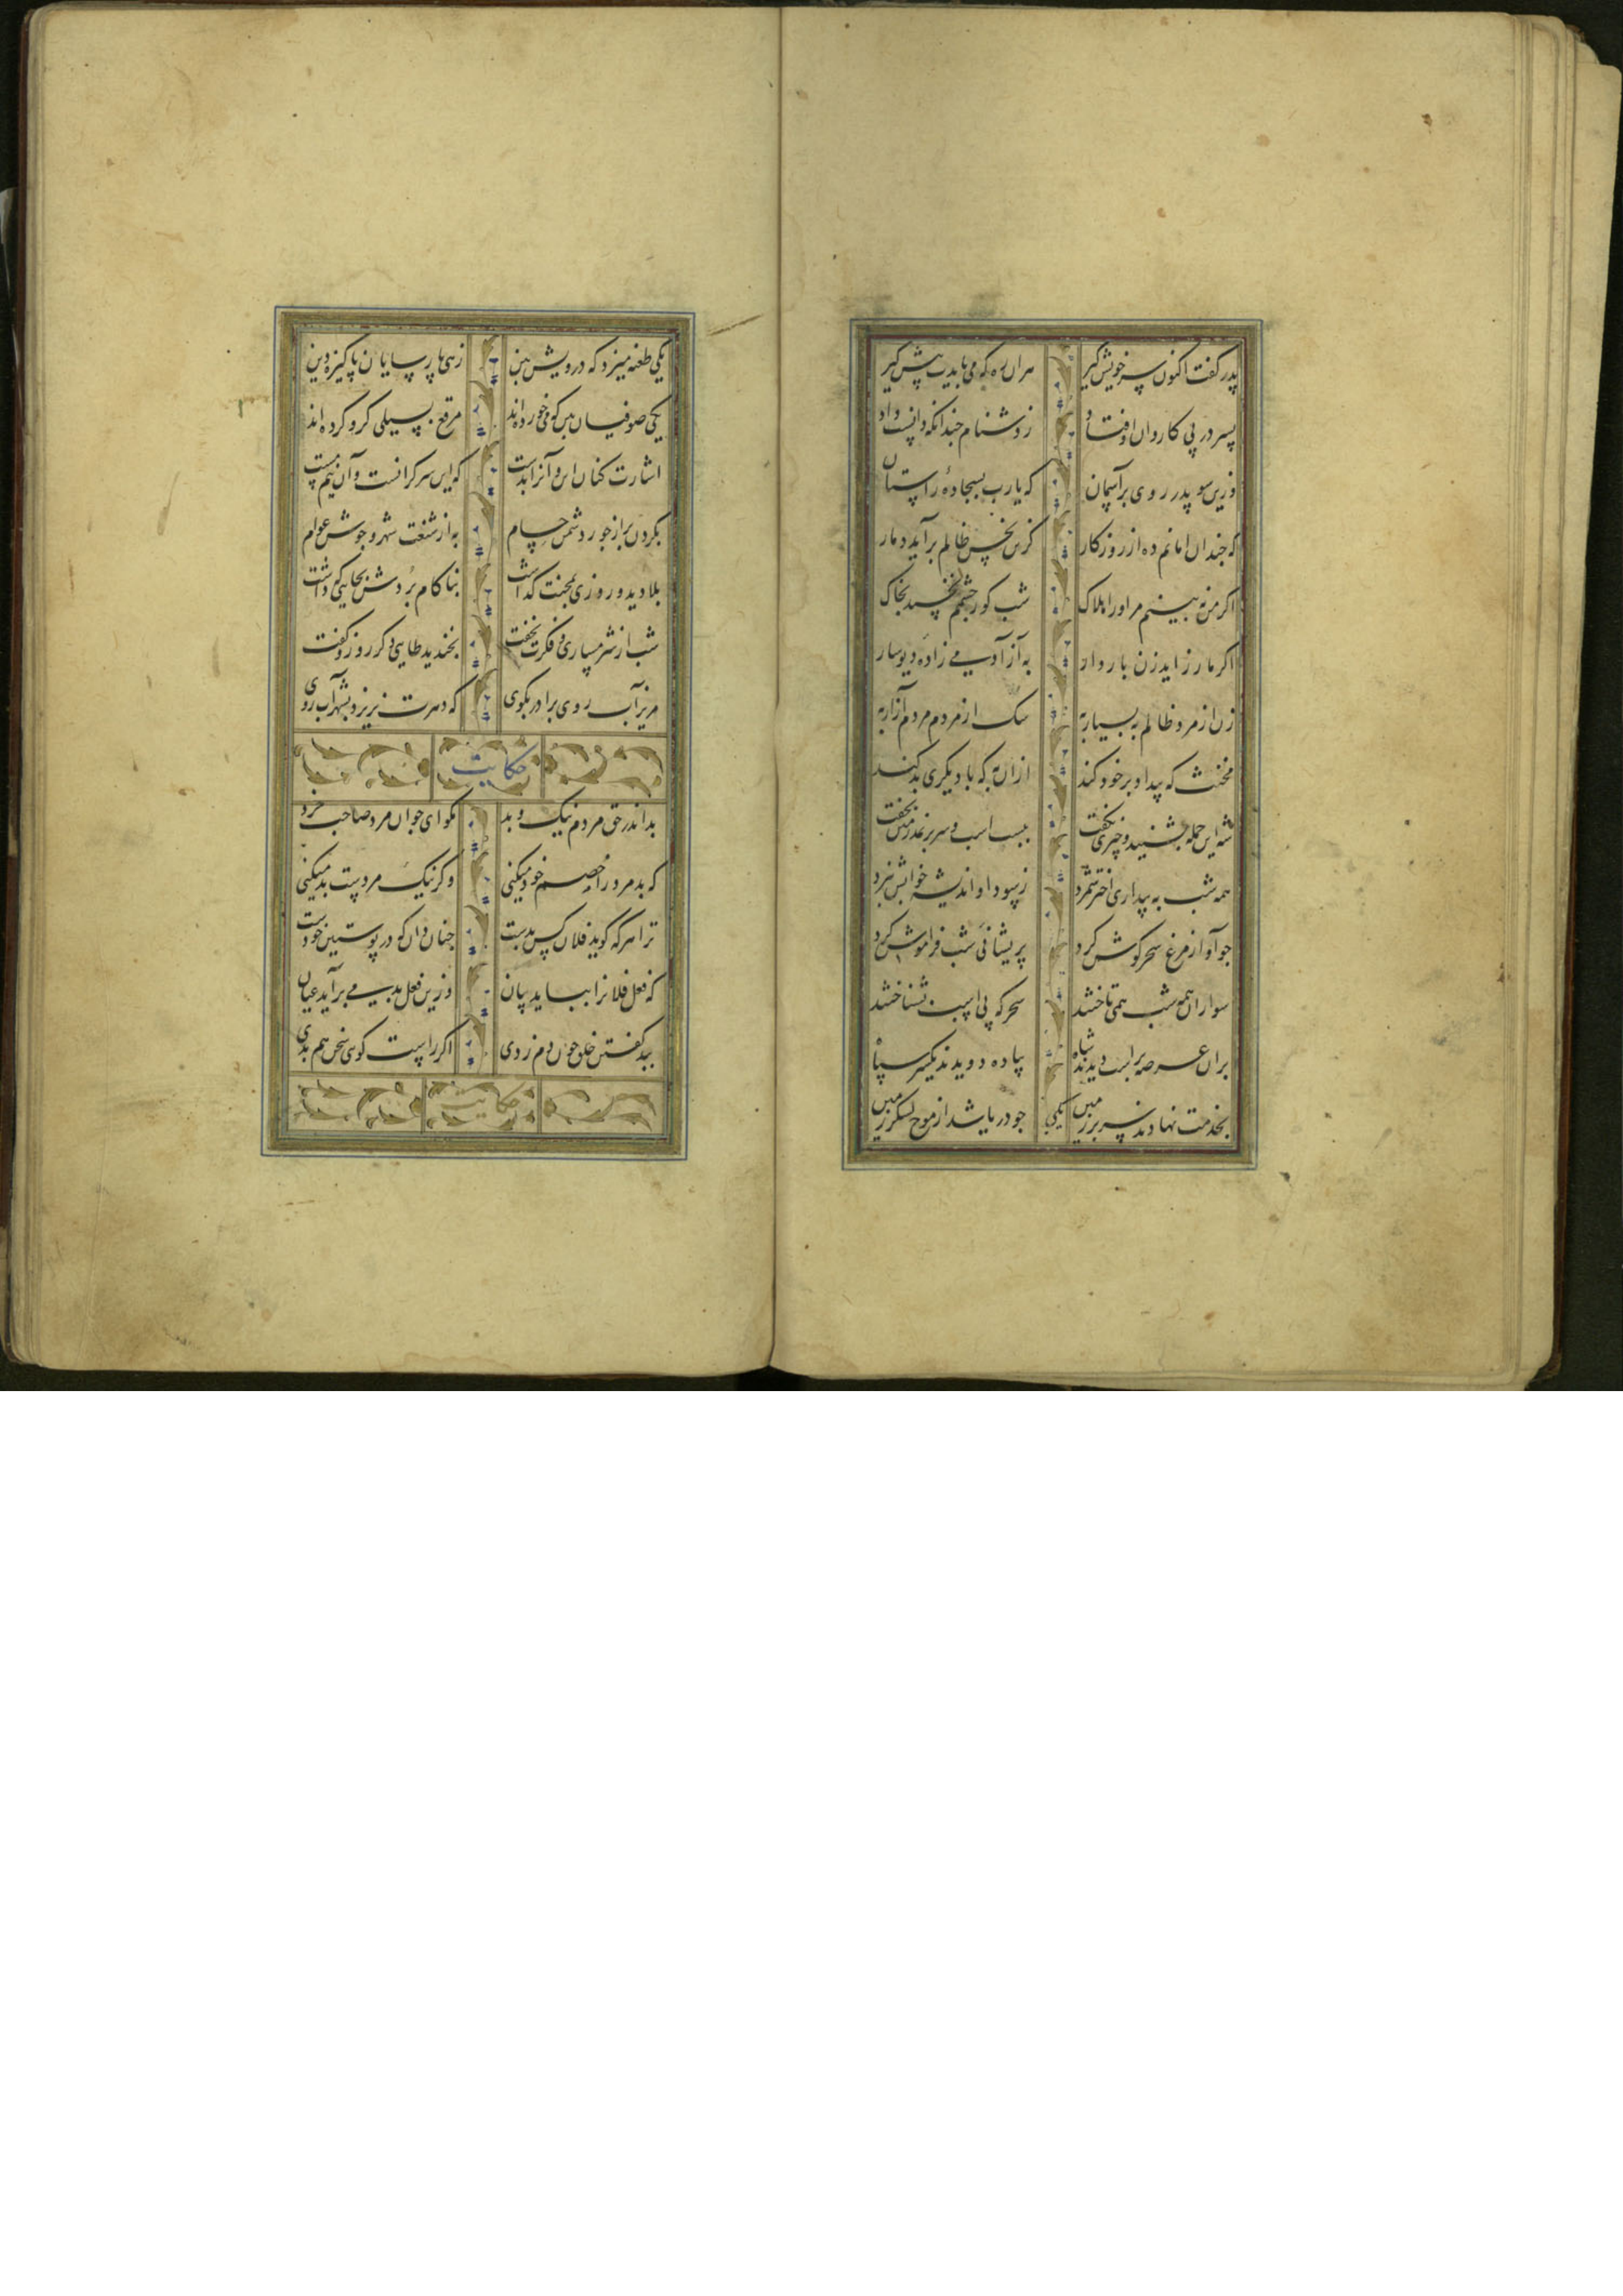 پدر گفت اکنون سر خویش گیر هر ان ره که می بایدت پیش گیر
پسر در پی کاروان اوفتاد ز دشنام چندانکه دانست داد
وزین سو پدر روی بر آسمان که یارب بسجادهٔ راستان
که چندان امانم ده از روزکار کزین نحس ظالم براید دمار
اکر من نه بینم مر اورا هلاک شب کور چشمم نخسبد بخاک
اکر مار زاید زن باردار به از آدمی زادهٔ دیوسار
زن از مرد ظالم به بسیار به سک از مردم مردم آزار به
مخنث که بیداد بر خود کند ازان به که با دیکری بد کند
شه این جمله بشنید و چیزی نکفت ببست اسب و سر بر نمدزین بخفت
همه شب به بیداری اختر شمرد ز سودا و اندیشه خوابش نبرد
جو آواز مرغ سحر کوش کرد پریشانی شب فراموش کرد
سواران همه شب همی تاختند سحرکه پی اسب بشناختند
بران عرصه بر اسب دیدند شاه پیاده دویدند یکسر سپاه
بخدمت نهادند سر بر زمین جو دریا شد از موج لشکر زمین
یکی
یکی طعنه میزد که درویش بین زهی پارسایان پاکیزه دین
یکی صوفیان بین که می خورده اند مرقع بسیکی کرو کرده اند
اشارت کنان این و آنرا بدست که این سرکرانست و آن نیم مست
بکردن بر از جور دشمن حسام به از شنعت شهر و جوش عوام
بلا دید و روزی بمحنت کذاشت بناکام بردش بجایی که داشت
شب از شرمساری و فکرت نخفت بخندید طایی دکر روز و کفت
مریز آب روی برادر بکوی که دهرت نریزد بشهر آب روی
حکایت
بد اندر حق مردم نیک و بد مکو ای جوان مرد صاحب خرد
که بد مرد را خصم خود میکنی وکر نیک مردست بد میکنی
ترا هر که کوید فلان کس بدست چنان دان که در پوستین خودست
که فعل فلانرا بباید بیان وزین فعل بد می برآید عیان
ببد کفتن خلق چون دم زدی اکر راست کویی سخن هم بدی
حکایت